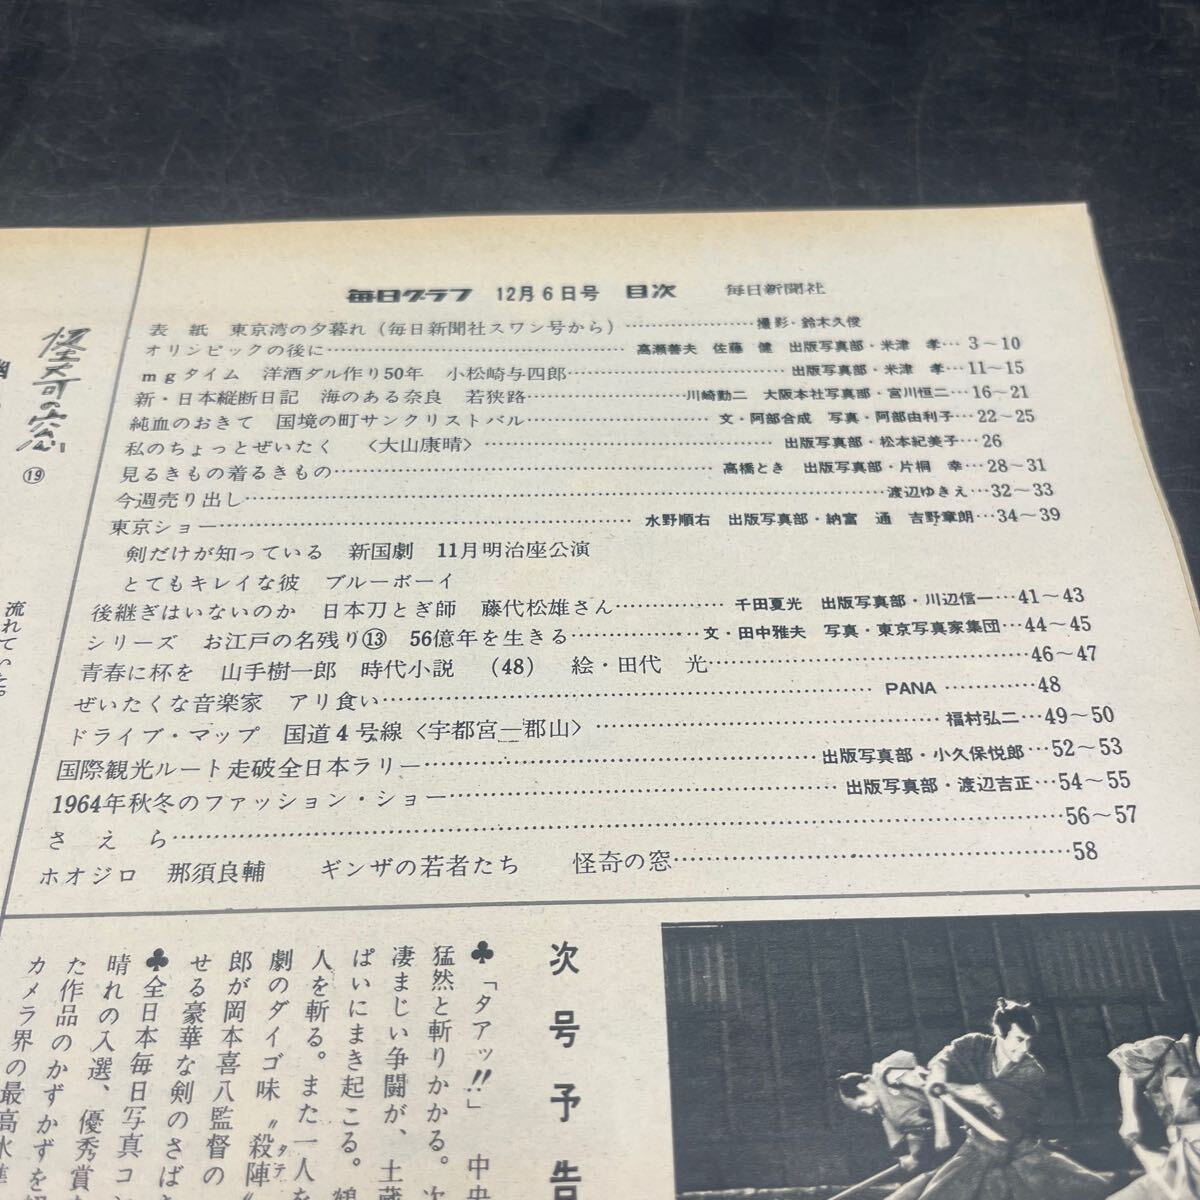 毎日グラフ 12月6日号 目次 毎日新聞社
表 紙 東京湾の夕暮れ(毎日新聞社スワン号から)……………撮影・鈴木久俊
オリンピックの後に……………高瀬善夫 佐藤 健 出版写真部・米津 孝…3〜10
mgタイム 洋酒ダル作り50年 小松崎与四郎……………出版写真部・米津 孝…11〜15
新・日本縦断日記 海のある奈良 若狭路……………川崎勳二 大阪本社写真部・宮川恒二…16〜21
純血のおきて 国境の町サンクリストバル……………文・阿部合成 写真・阿部由利子…22〜25
私のちょっとぜいたく 〈大山康晴〉……………出版写真部・松本紀美子…26
見るきもの着るきもの……………高橋とき 出版写真部・片桐 幸…28〜31
今週売り出し……………渡辺ゆきえ…32〜33
東京ショー……………水野順右 出版写真部・納富 通 吉野章朗…34〜39
剣だけが知っている 新国劇 11月明治座公演
とてもキレイな彼 ブルーボーイ
後継ぎはいないのか 日本刀とぎ師 藤代松雄さん……………千田夏光 出版写真部・川辺信一…41〜43
シリーズ お江戸の名残り⑬ 56億年を生きる……………文・田中雅夫 写真・東京写真家集団…44〜45
青春に杯を 山手樹一郎 時代小説 (48) 絵・田代 光……………46〜47
ぜいたくな音楽家 アリ食い……………PANA…………48
ドライブ・マップ 国道4号線〈宇都宮―郡山〉……………福村弘二…49〜50
国際観光ルート走破全日本ラリー……………出版写真部・小久保悦郎…52〜53
1964年秋冬のファッション・ショー……………出版写真部・渡辺吉正…54〜55
さ え ら……………56〜57
ホオジロ 那須良輔 ギンザの若者たち 怪奇の窓……………58
怪奇の窓
⑲
流れていた
次号予告
♣「タアッ!!」中央
猛然と斬りかかる。次
凄まじい争闘が、土蔵
ぱいにまき起こる。鶴
人を斬る。また一人を
劇のダイゴ味〝殺陣〟タテ
郎が岡本喜八監督の
せる豪華な剣のさば
♣全日本毎日写真コン
晴れの入選、優秀賞
た作品のかずかずを
カメラ界の最高水準